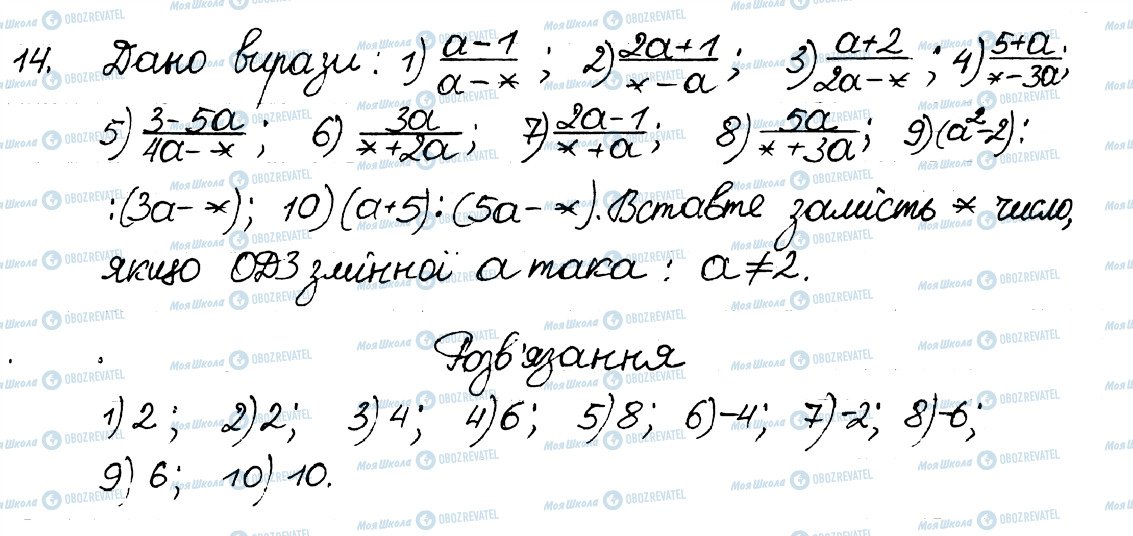 14. Дано вирази: 1) (a-1)/(a-*); 2) (2a+1)/(*-a); 3) (a+2)/(2a-*); 4) (5+a)/(*-3a);
5) (3-5a)/(4a-*); 6) 3a/(*+2a); 7) (2a-1)/(*+a); 8) 5a/(*+3a); 9) (a²-2):
:(3a-*); 10) (a+5):(5a-*). Вставте замість * число,
якщо ОДЗ змінної a така: a≠2.
Розв'язання
1) 2; 2) 2; 3) 4; 4) 6; 5) 8; 6) -4; 7) -2; 8) -6;
9) 6; 10) 10.
МояШкола OBOZREVATEL